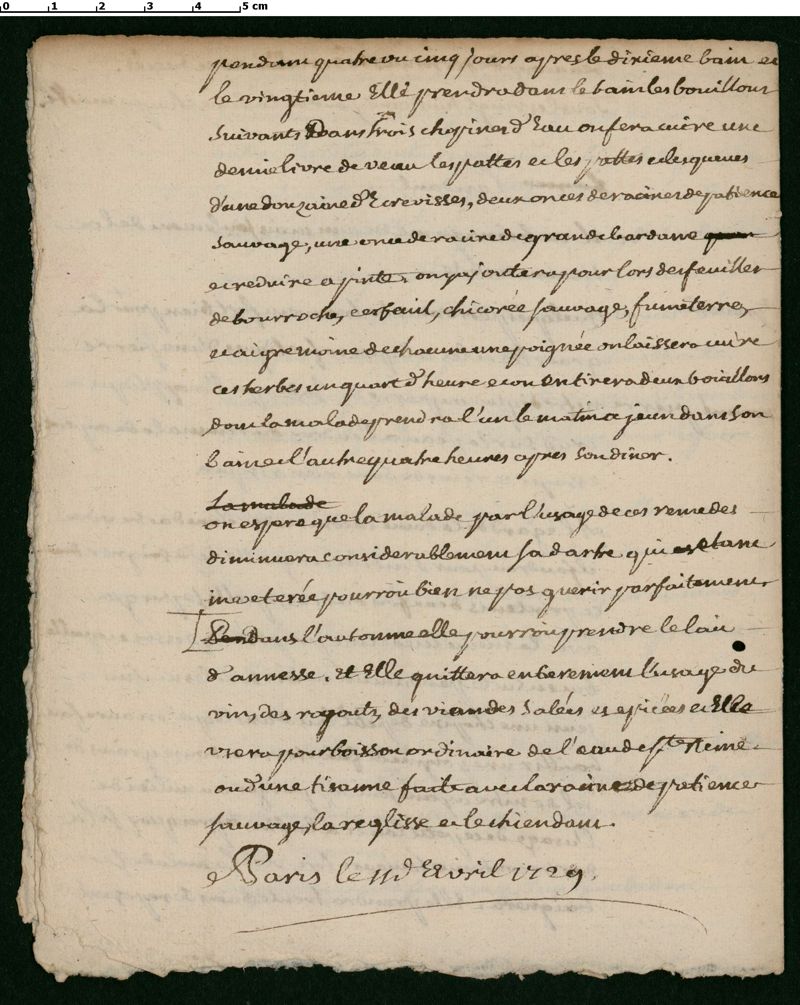 0 1 2 3 4 5 cm
pendant quatre ou cinq jours apres le dixieme bain et
le vingtieme Elle prendra dans le bain les bouillons
suivants Dans trois chopines d'Eau on fera cuire une
demie livre de veau les pattes et les pattes et les queues
d'une douzaine d'Ecrevisses, deux onces de racines de patience
sauvage, une once de racine de grande bardane
et reduire a pinte. on y ajoutera pour lors des feuilles
de bourroche, cerfeuil, chicorée sauvage, fumeterre,
et aigremoine de chacune une poignée on laissera cuire
ces herbes un quart d'heure et on en tirera deux bouillons
dont la malade prendra l'un le matin a jeun dans son
bain et l'autre quatre heures apres son diner.
La malade
on espere que la malade par l'usage de ces remedes
diminuera considerablement sa dartre qui estant
inveterée pourroit bien ne pas guerir parfaitement
Dans l'automne elle pourroit prendre le lait
d'annesse. Et Elle quittera entierement l'usage du
vin, des ragouts, des viandes salées et epicées et Elle
usera pour boisson ordinaire de l'eau de ste Reine
ou d'une tisanne faite avec la racine de patience
sauvage, la reglisse et le chiendant.
A Paris le 11 d'Avril 1729.